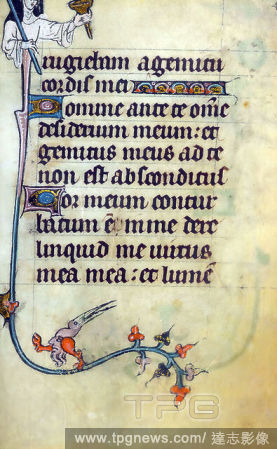 rugiebam a gemitu
cordis mei
Domine ante te om̄e
desiderium meum: et
gemitus meus ad te
non est absconditus
Cor meum contur
batum ē in me dere
linquid me uirtus
mea mea: et lumē
TPG
www.tpgnews.com/ 達志影像